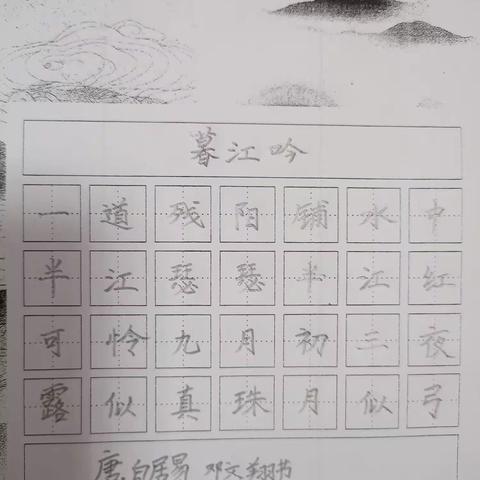 暮江吟
一道残阳铺水中
半江瑟瑟半江红
可怜九月初三夜
露似真珠月似弓
唐白居易 邓文翔书